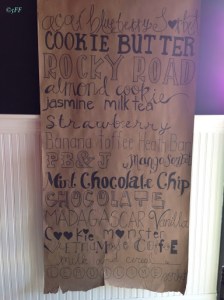 ©yFF
acai blueberry Sorbet
COOKIE BUTTER
ROCKY ROAD
almond cookie
Jasmine milk tea
strawberry
Banana Toffee
PB&J Mango Sorbet
Mint Chocolate Chip
CHOCOLATE
MADAGASCAR Vanilla
Cookie Monster
VIETNAMESE COFFEE
milk and